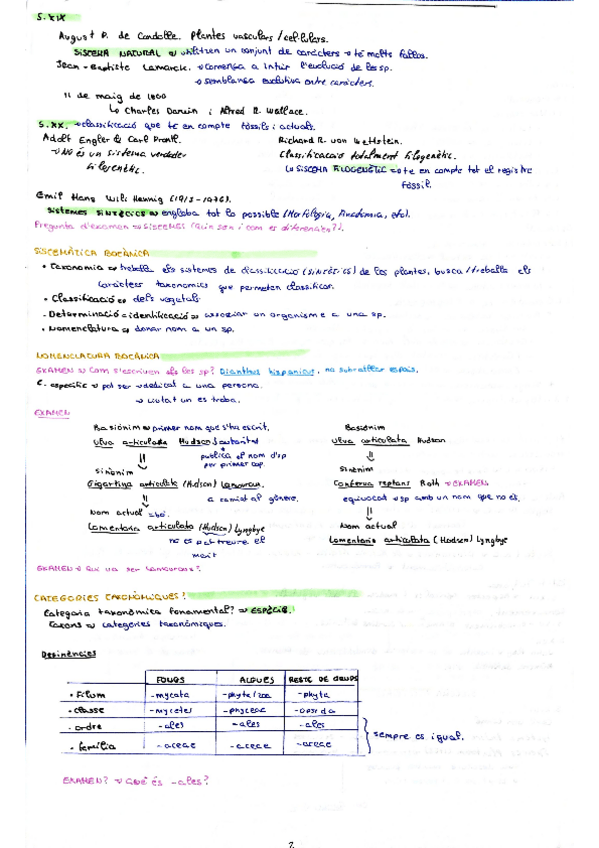 S. XIX
August P. de Candolle. Plantes vasculars / cel·lulars.
SISTEMA NATURAL → utilitzen un conjunt de caràcters → té molts fallos.
Jean-Baptiste Lamarck. → comença a intuir l'evolució de les sp.
→ semblança evolutiva entre caràcters.
11 de maig de 1860
↳ Charles Darwin i Alfred R. Wallace.
S. XX. → classificació que té en compte fòssils i actuals.
Adolf Engler & Carl Prantl.
→ No és un sistema verdader filogenètic.
Richard R. von Wettstein.
Classificació totalment filogenètic.
↳ SISTEMA FILOGENÈTIC → té en compte tot el registre fòssil.
Emil Hans Willi Hennig (1913-1976).
Sistemes SINTÈTICS → engloba tot lo possible (Morfologia, Anatomia, etc).
Pregunta d'examen → SISTEMES (Quin son i com es diferencien?).
SISTEMÀTICA BOTÀNICA
• Taxonomia → treballa els sistemes de classificació (SINTÈTICS) de les plantes, busca/treballa els
caràcters taxonomics que permeten classificar.
• Classificació → dels vegetals
- Determinació = identificació → associar un organisme a una sp.
• Nomenclatura → donar nom a un sp.
NOMENCLATURA BOTÀNICA
EXAMEN → Com s'escriuen els les sp? Dianthus hispanicus, no subratllar espais.
C. específic → pot ser → dedicat a una persona.
→ lloc on es troba.
EXAMEN
Basiònim → primer nom que s'ha escrit.
Ulva articulata Hudson } autoritat
publica el nom d'sp
per primer cop.
Sinònim
Gigartina articulata (Hudson) Lamouroux.
a canviat al gènere.
Nom actual
Lomentaria articulata (Hudson) Lyngbye
no es pot treure el
merit
Basiònim
Ulva articulata Hudson
Sinònim
Conferva reptans Roth → EXAMEN
equivocat → sp amb un nom que no és.
Nom actual
Lomentaria articulata (Hudson) Lyngbye
EXAMEN → Qui va ser Lamouroux?
CATEGORIES TAXONÒMIQUES?
Categoria taxonòmica fonamental? → ESPÈCIE.
Taxons → categories taxonòmiques.
Desinències
FONGS ALGUES RESTE DE GRUPS
• Fílum -mycota -phyta/zoa -phyta
• classe -mycetes -phyceae -opsida
- ordre -ales -ales -ales
• família -aceae -aceae -aceae
sempre es igual.
EXAMEN? → QUÈ és -ales?
2